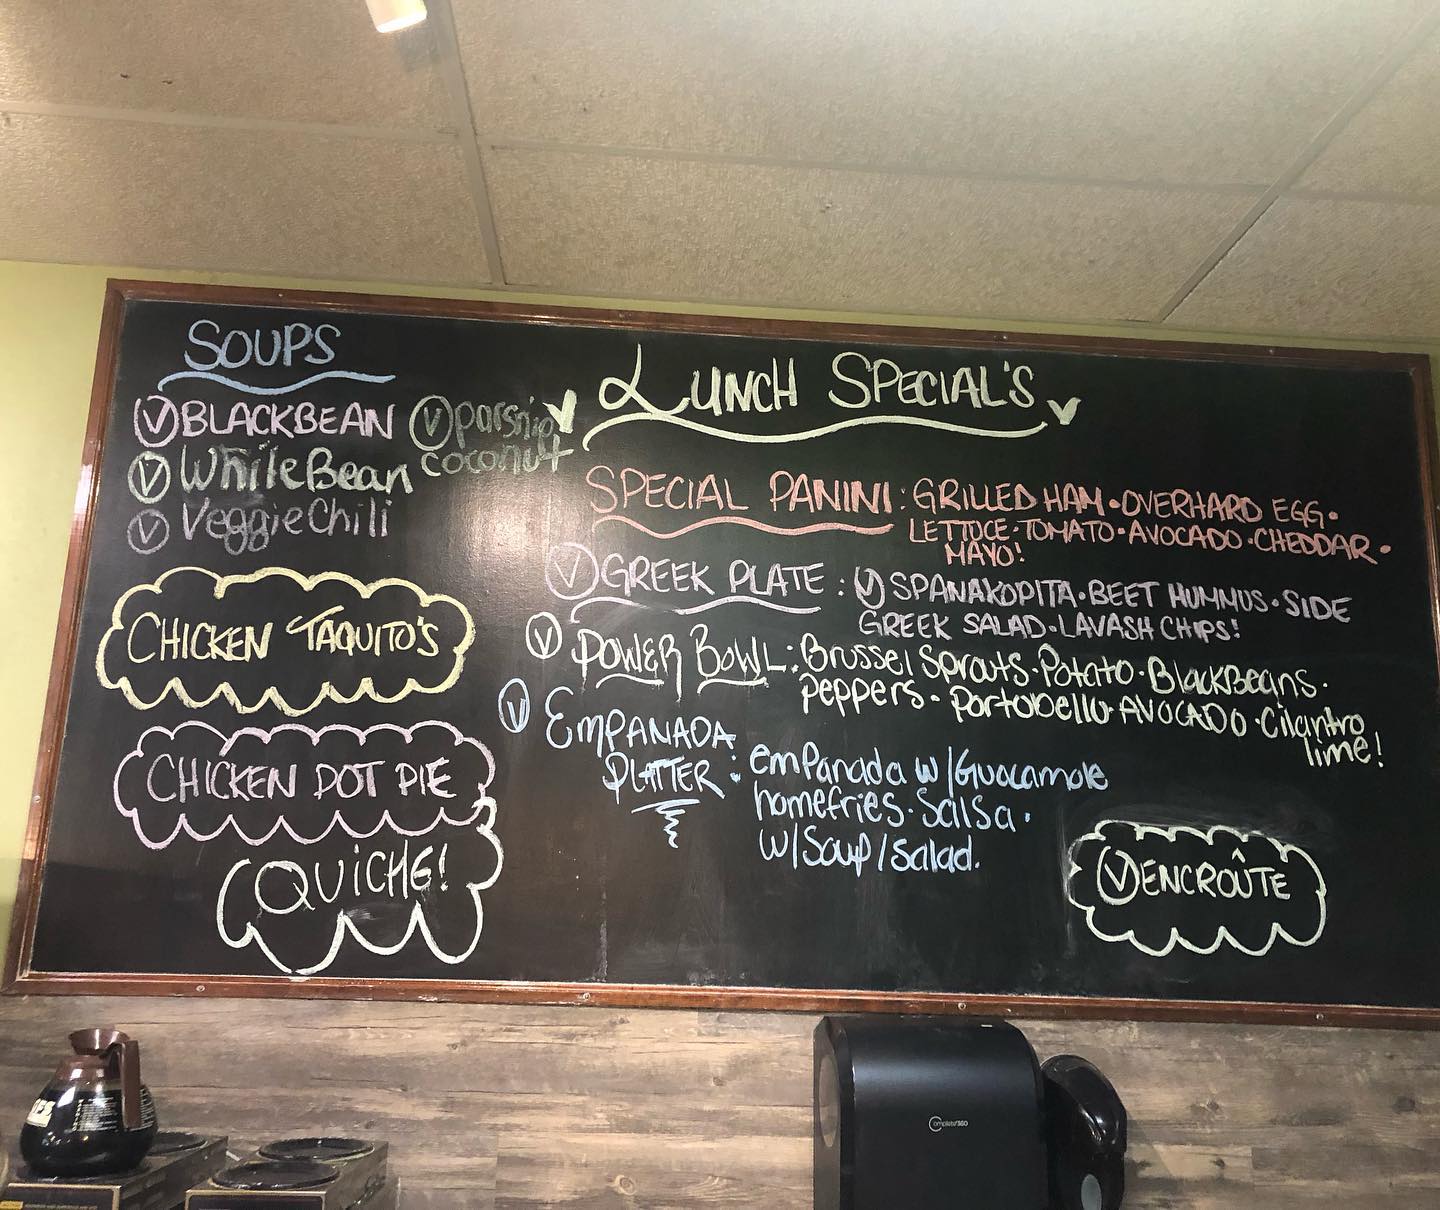 SOUPS
Ⓥ BLACKBEAN
Ⓥ White Bean
Ⓥ Veggie Chili
Ⓥ parsnip
coconut
CHICKEN TAQUITO'S
CHICKEN POT PIE
QUICHE!
LUNCH SPECIAL'S
SPECIAL PANINI: GRILLED HAM • OVERHARD EGG •
LETTUCE • TOMATO • AVOCADO • CHEDDAR •
MAYO!
Ⓥ GREEK PLATE: Ⓥ SPANAKOPITA • BEET HUMMUS • SIDE
GREEK SALAD • LAVASH CHIPS!
Ⓥ POWER BOWL: Brussel Sprouts • Potato • BlackBeans •
peppers • Portobello • AVOCADO • Cilantro
lime!
Ⓥ EMPANADA
PLATTER: empanada w/Guacamole
homefries • Salsa •
w/Soup/Salad.
Ⓥ ENCROÛTE
Complete 360